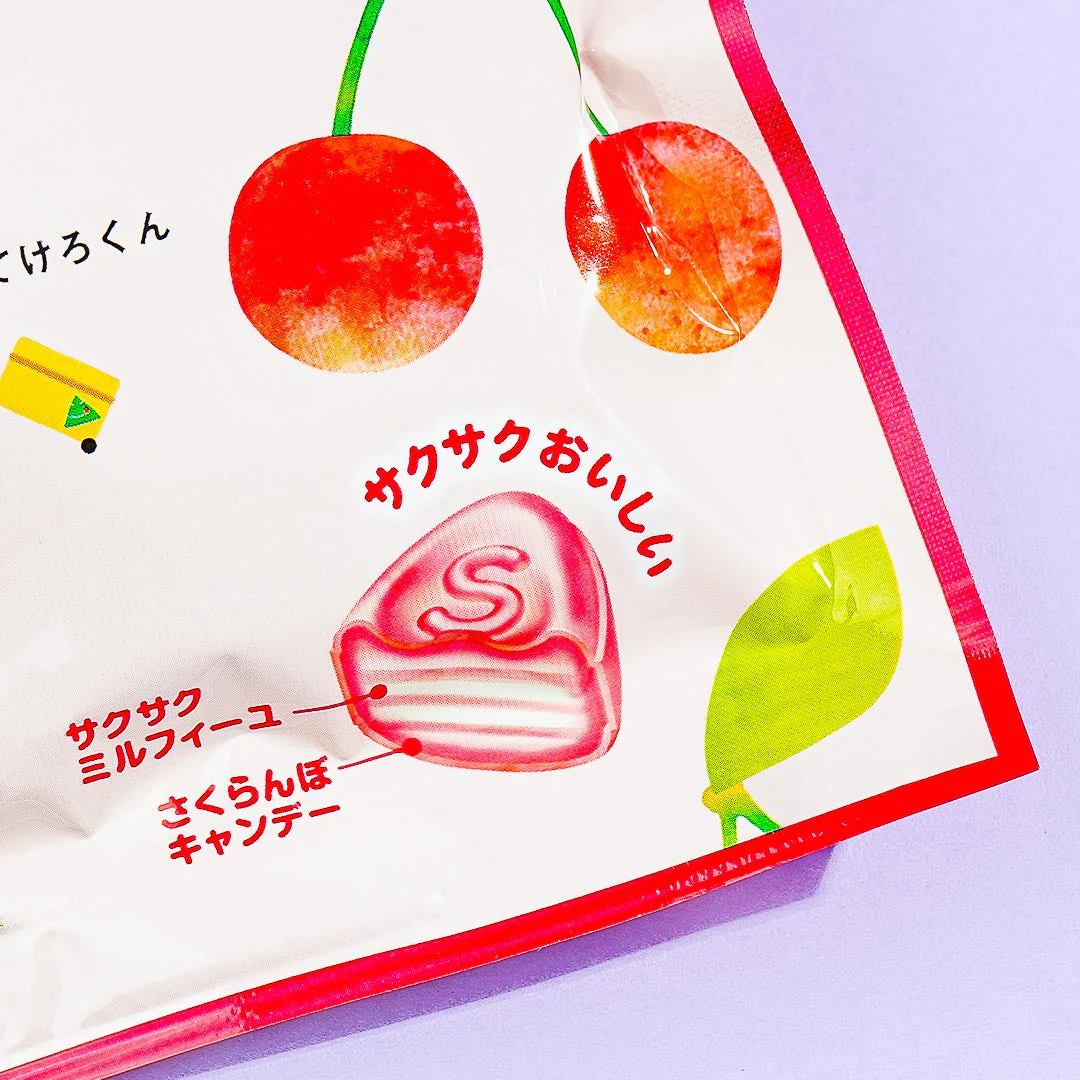 けろくん
サクサクおいしい
S
サクサク
ミルフィーユ
さくらんぼ
キャンデー